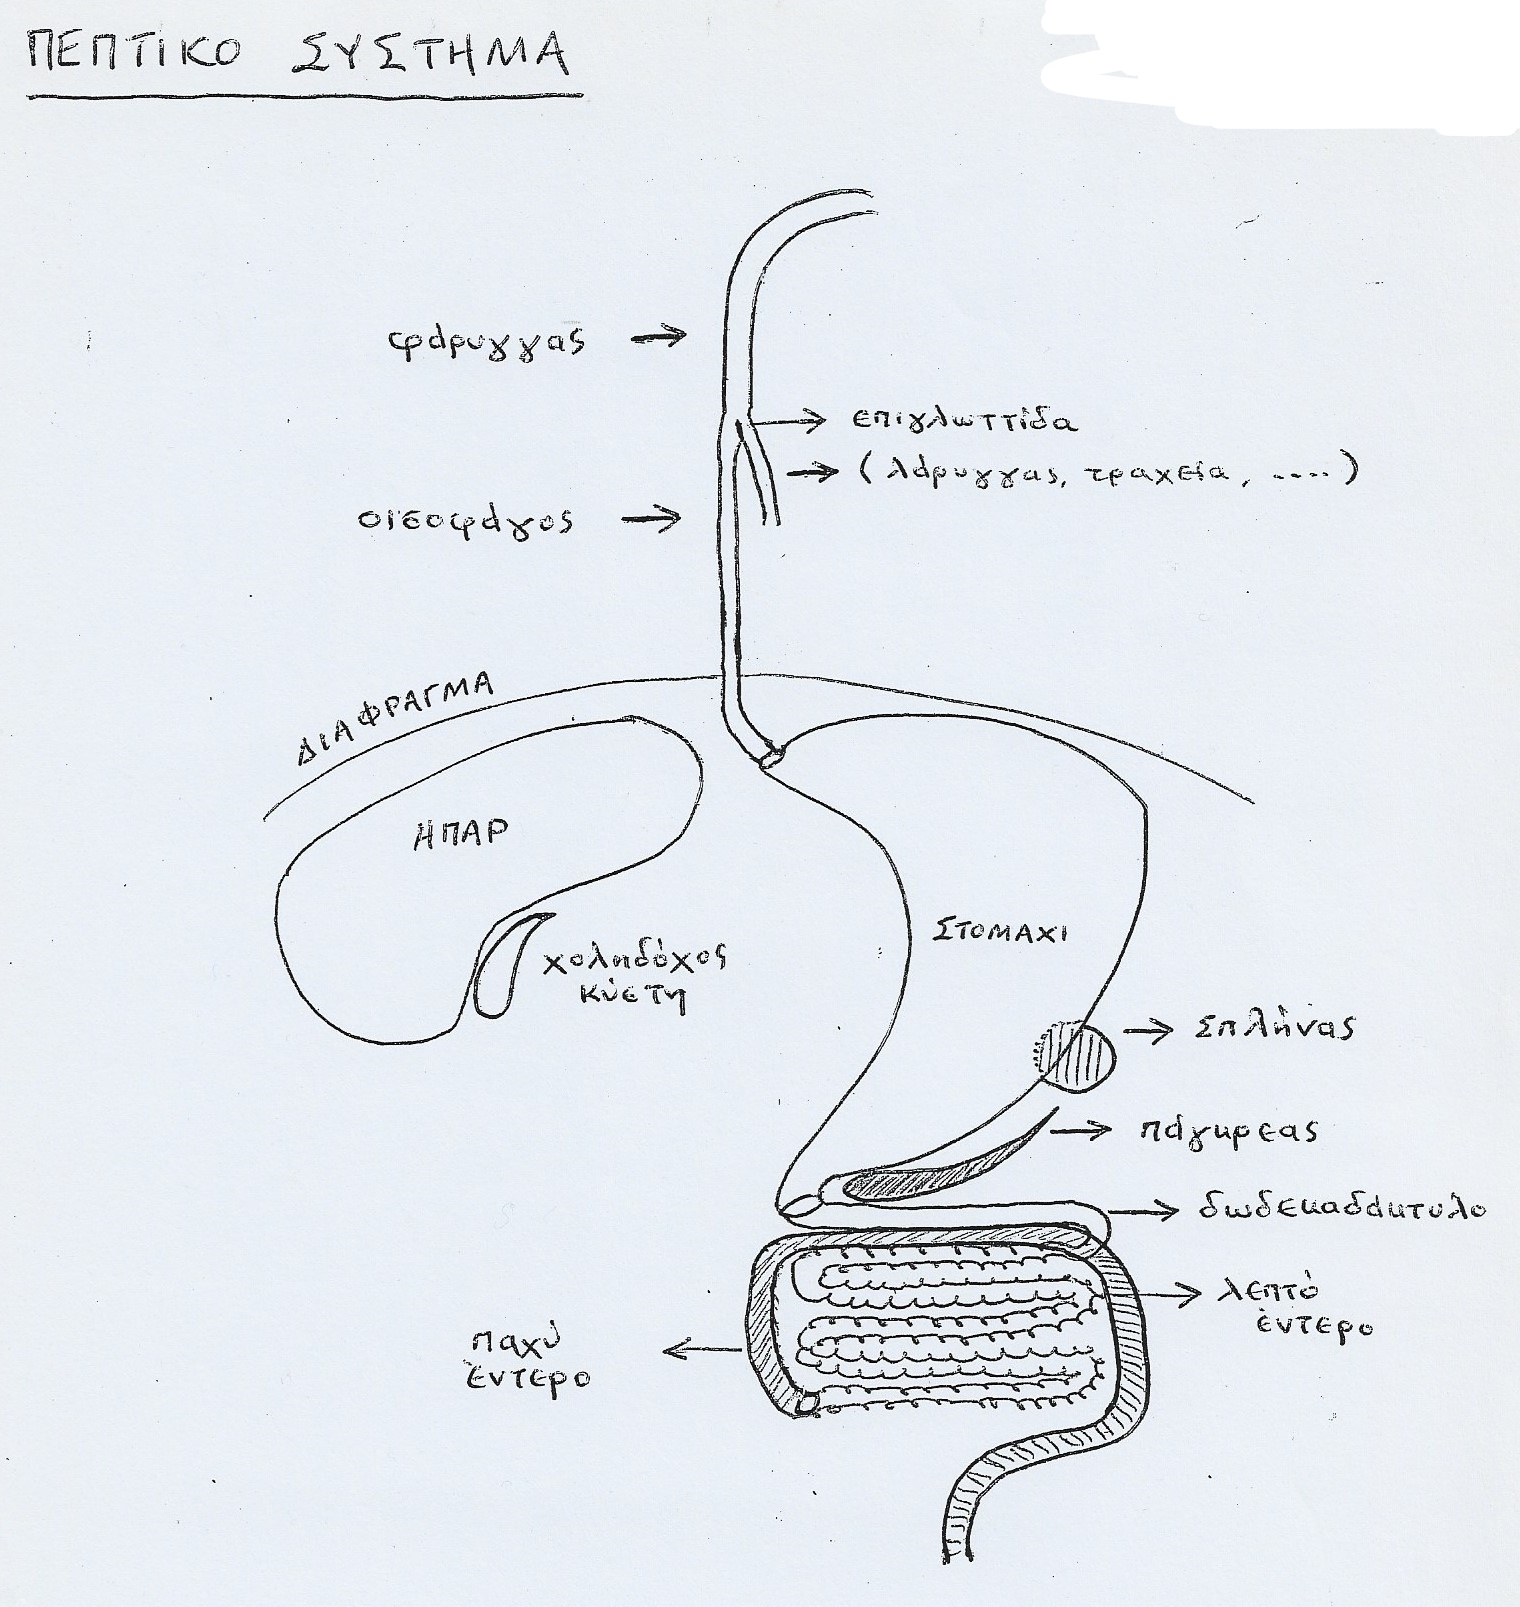 ΠΕΠΤΙΚΟ ΣΥΣΤΗΜΑ
φάρυγγας
επιγλωττίδα
(λάρυγγας, τραχεία, ....)
οισοφάγος
ΔΙΑΦΡΑΓΜΑ
ΗΠΑΡ
ΣΤΟΜΑΧΙ
χοληδόχος
κύστη
Σπλήνας
πάγκρεας
δωδεκαδάκτυλο
λεπτό
έντερο
παχύ
έντερο